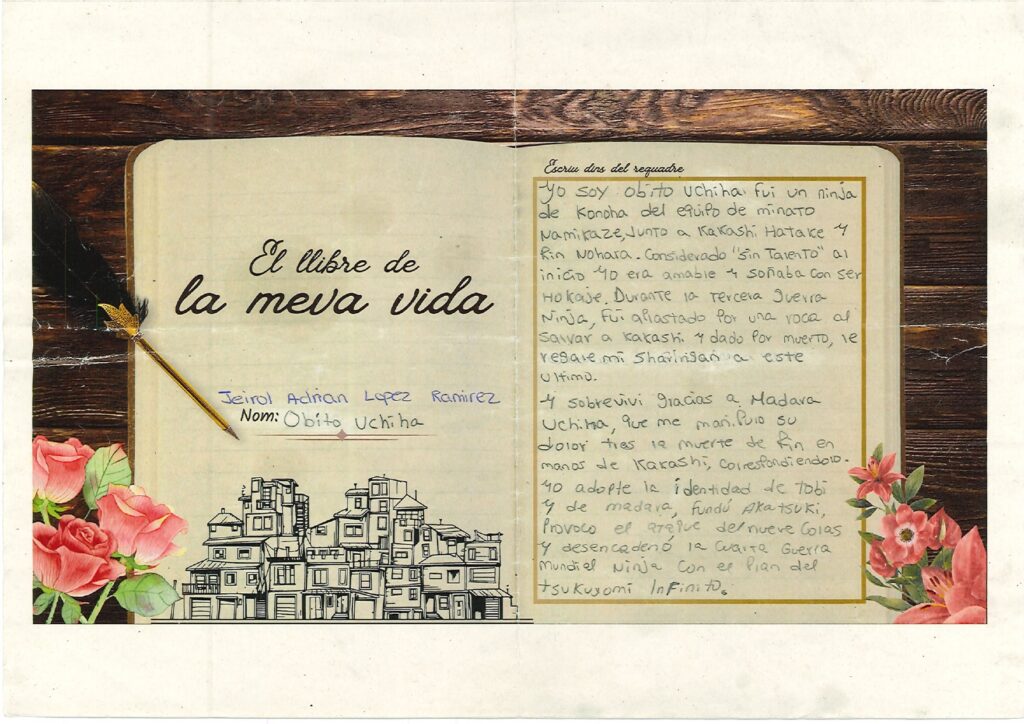 El llibre de
la meva vida
Jeirol Adrian Lopez Ramirez
Nom: Obito Uchiha
Escriu dins del requadre
Yo soy Obito Uchiha. Fui un ninja
de Konoha del equipo de minato
Namikaze, Junto a Kakashi Hatake y
Rin Nohara. Considerado "Sin Talento" al
inicio yo era amable y soñaba con ser
Hokaje. Durante la Tercera guerra
Ninja, Fui aplastado Por una roca al
salvar a Kakashi y dado Por muerto, le
regale mi sharingan a este
ultimo.
Y sobrevivi gracias a Madara
Uchiha, que me maniPulo su
dolor tras la muerte de Rin en
manos de Kakashi, correspondiendolo.
Yo adopte la identidad de Tobi
y de madara, Fundú Akatsuki,
Provoco el ataque del nueve Colas
y desencadenó la cuarta Guerra
mundial Ninja con el Plan del
Tsukuyomi InFinito.